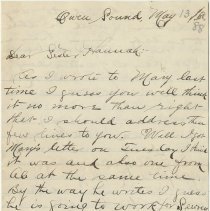 Owen Sound May 13/
88
Dear Sister Hannah
As I wrote to Mary last
time I guess you will think
it no more than right
that I should address this
few lines to you. Well I got
Mary's letter on Tuesday I think
it was and also one from
at the same time
By the way he writes I guess
he is going to work for